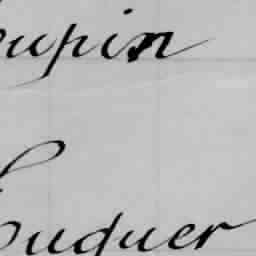 upin
uquer